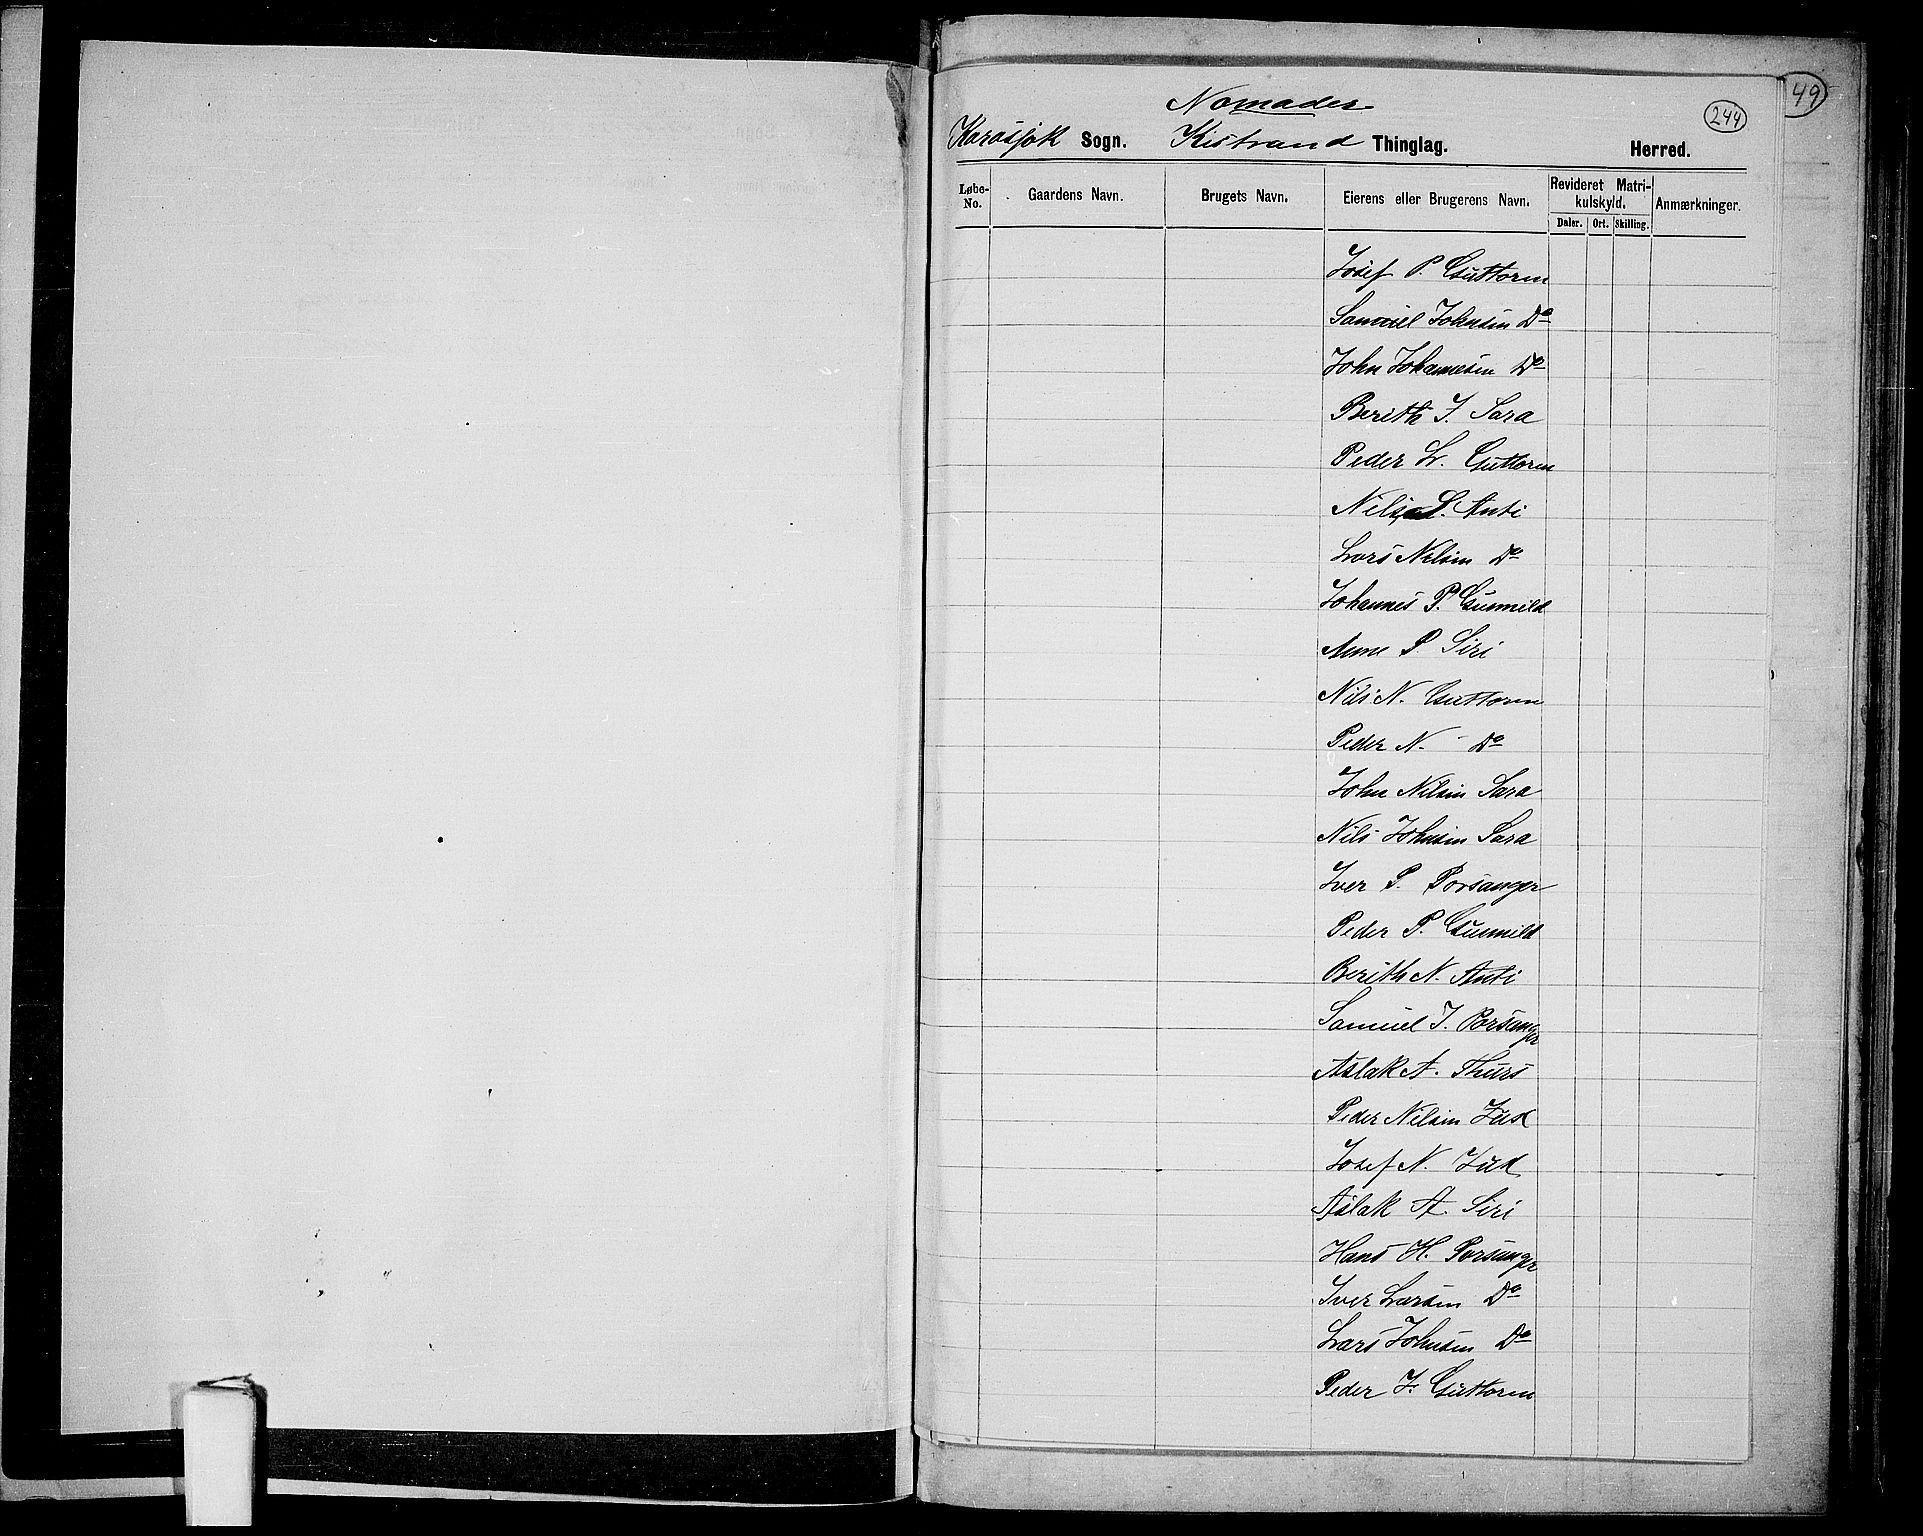 49
244
Nomader
Karasjok Sogn. Kistrand Thinglag. Herred.
Løbe-No. Gaardens Navn. Brugets Navn. Eierens eller Brugerens Navn. Revideret Matrikulskyld. Anmærkninger.
Daler. Ort. Skilling.
Josef P. Guttorm
Samuel Johnsen Do
John Johannesen Do
Berith J. Sara
Peder L. Guttorm
Nils L. Anti
Lars Nilsen Do
Johannes P. Gunnild
Anne P. Siri
Nils N. Guttorm
Peder N. Do
John Nilsen Sara
Nils Johnsen Sara
Iver P. Porsanger
Peder P. Gunnild
Berith N. Anti
Samuel J. Porsanger
Aslak A. Thuri
Peder Nilsen Jud
Josef N. Jud
Aslak A. Siri
Hans H. Porsanger
Iver Larsen Do
Lars Johnsen Do
Peder J. Guttorm